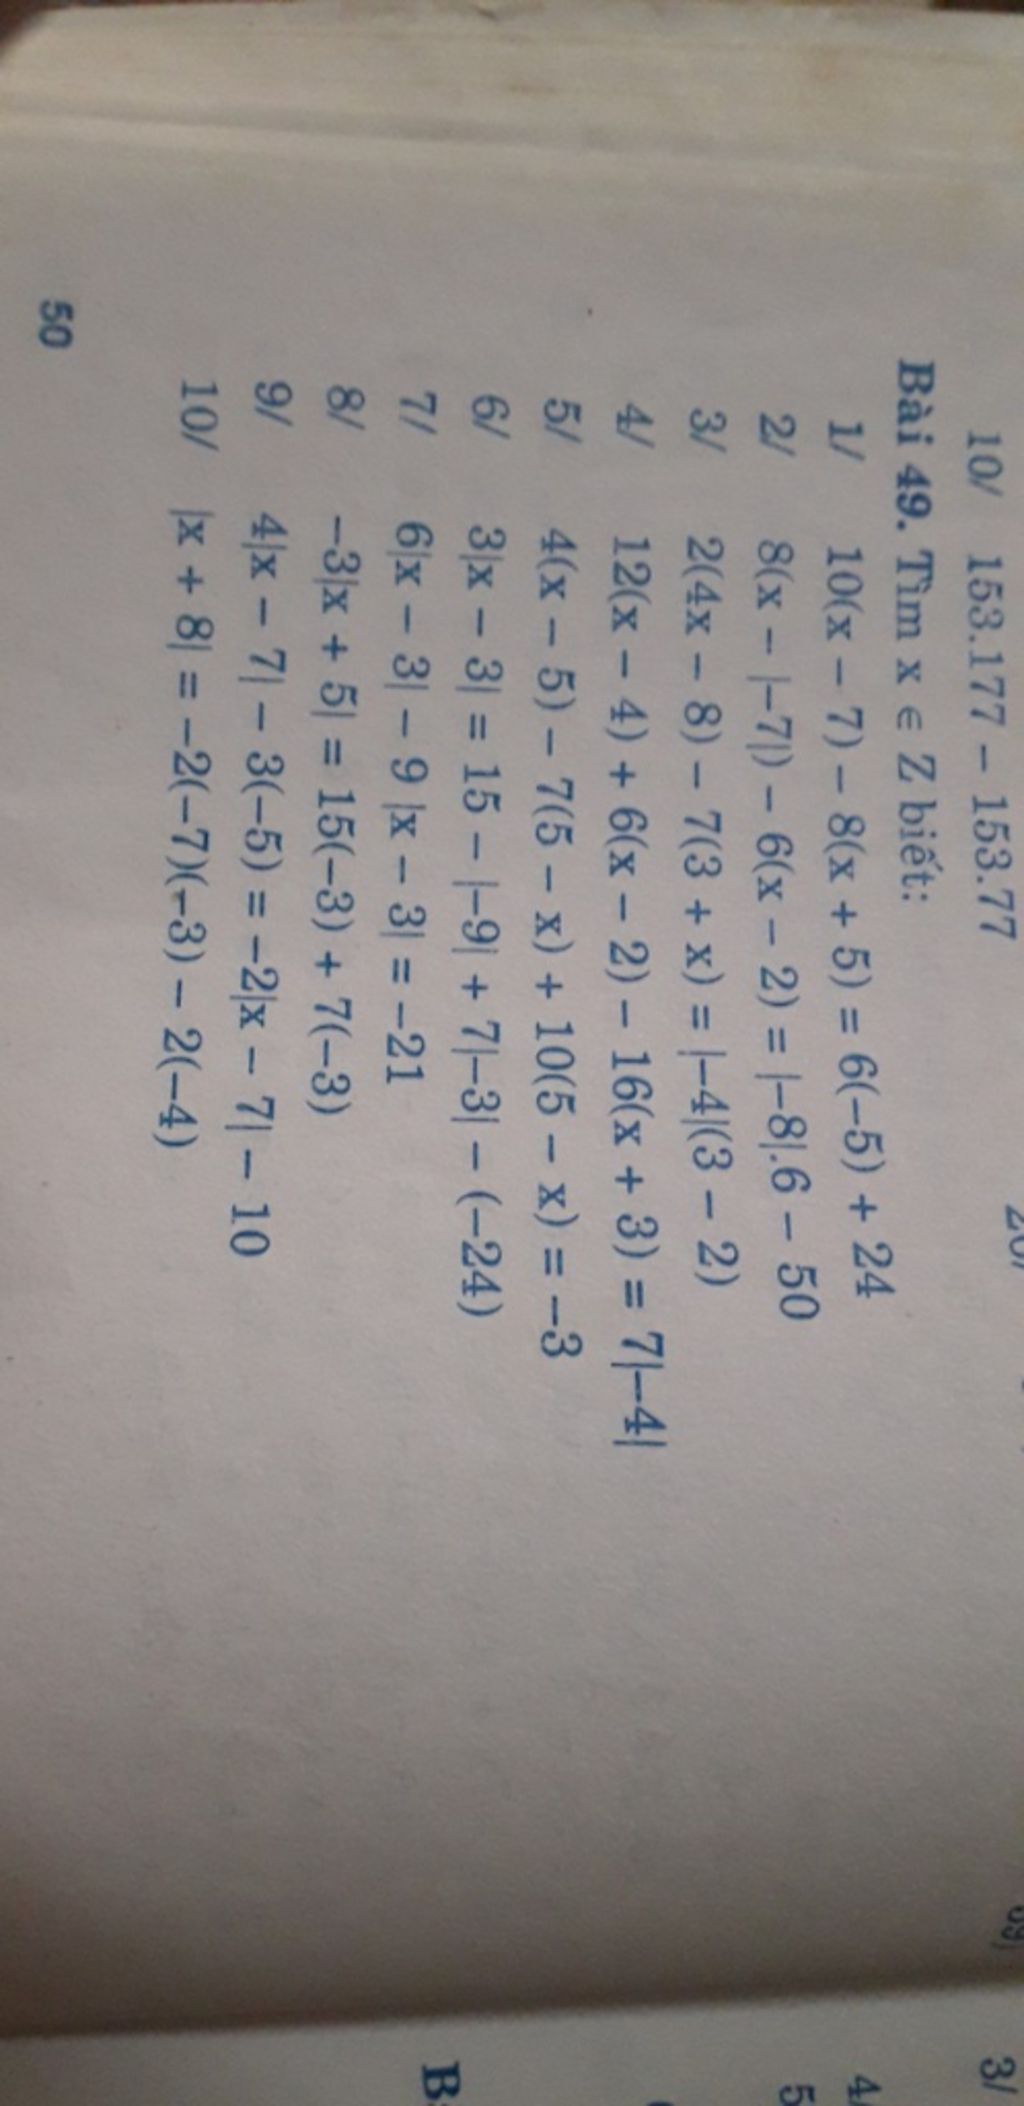 10/ 153.177 – 153.77
Bài 49. Tìm x ∈ Z biết:
1/ 10(x – 7) – 8(x + 5) = 6(–5) + 24
2/ 8(x – |–7|) – 6(x – 2) = |–8|.6 – 50
3/ 2(4x – 8) – 7(3 + x) = |–4|(3 – 2)
4/ 12(x – 4) + 6(x – 2) – 16(x + 3) = 7|–4|
5/ 4(x – 5) – 7(5 – x) + 10(5 – x) = –3
6/ 3|x – 3| = 15 – |–9| + 7|–3| – (–24)
7/ 6|x – 3| – 9 |x – 3| = –21
8/ –3|x + 5| = 15(–3) + 7(–3)
9/ 4|x – 7| – 3(–5) = –2|x – 7| – 10
10/ |x + 8| = –2(–7)(–3) – 2(–4)
50
3/
4/
5
B